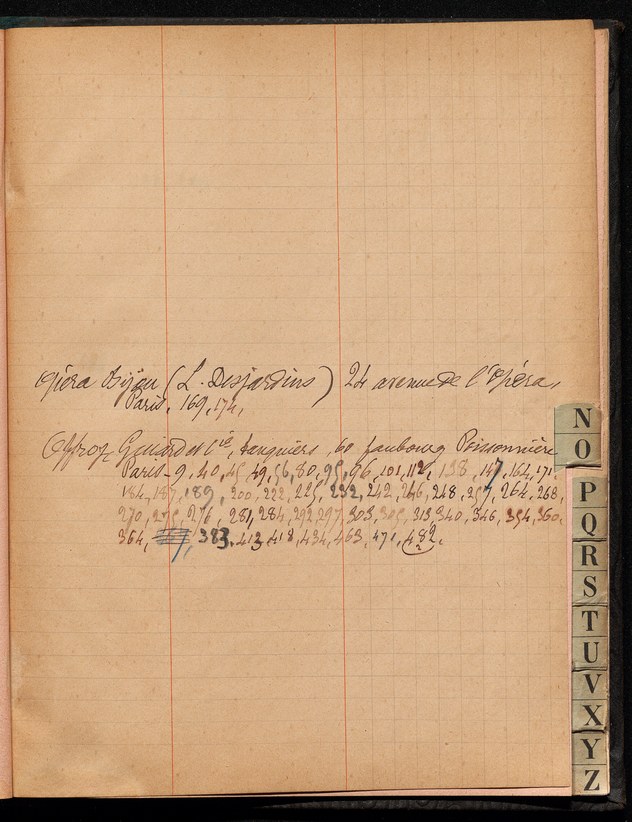 Opéra Bijou (L. Desjardins) 24 avenue de l'Opéra,
Paris, 169, 174,
Offroy Guiard et Cie, banquiers, 60 faubourg Poissonnière
Paris 9, 40, 45, 49, 56, 80, 95, 96, 101, 112, 138, 147, 164, 171,
184, 187, 189, 200, 222, 225, 232, 242, 246, 248, 257, 264, 268,
270, 275, 276, 281, 284, 292, 297, 303, 305, 313, 340, 346, 354, 360,
364, 383, 413, 418, 434, 463, 471, 482.
N
O
P
Q
R
S
T
U
V
X
Y
Z